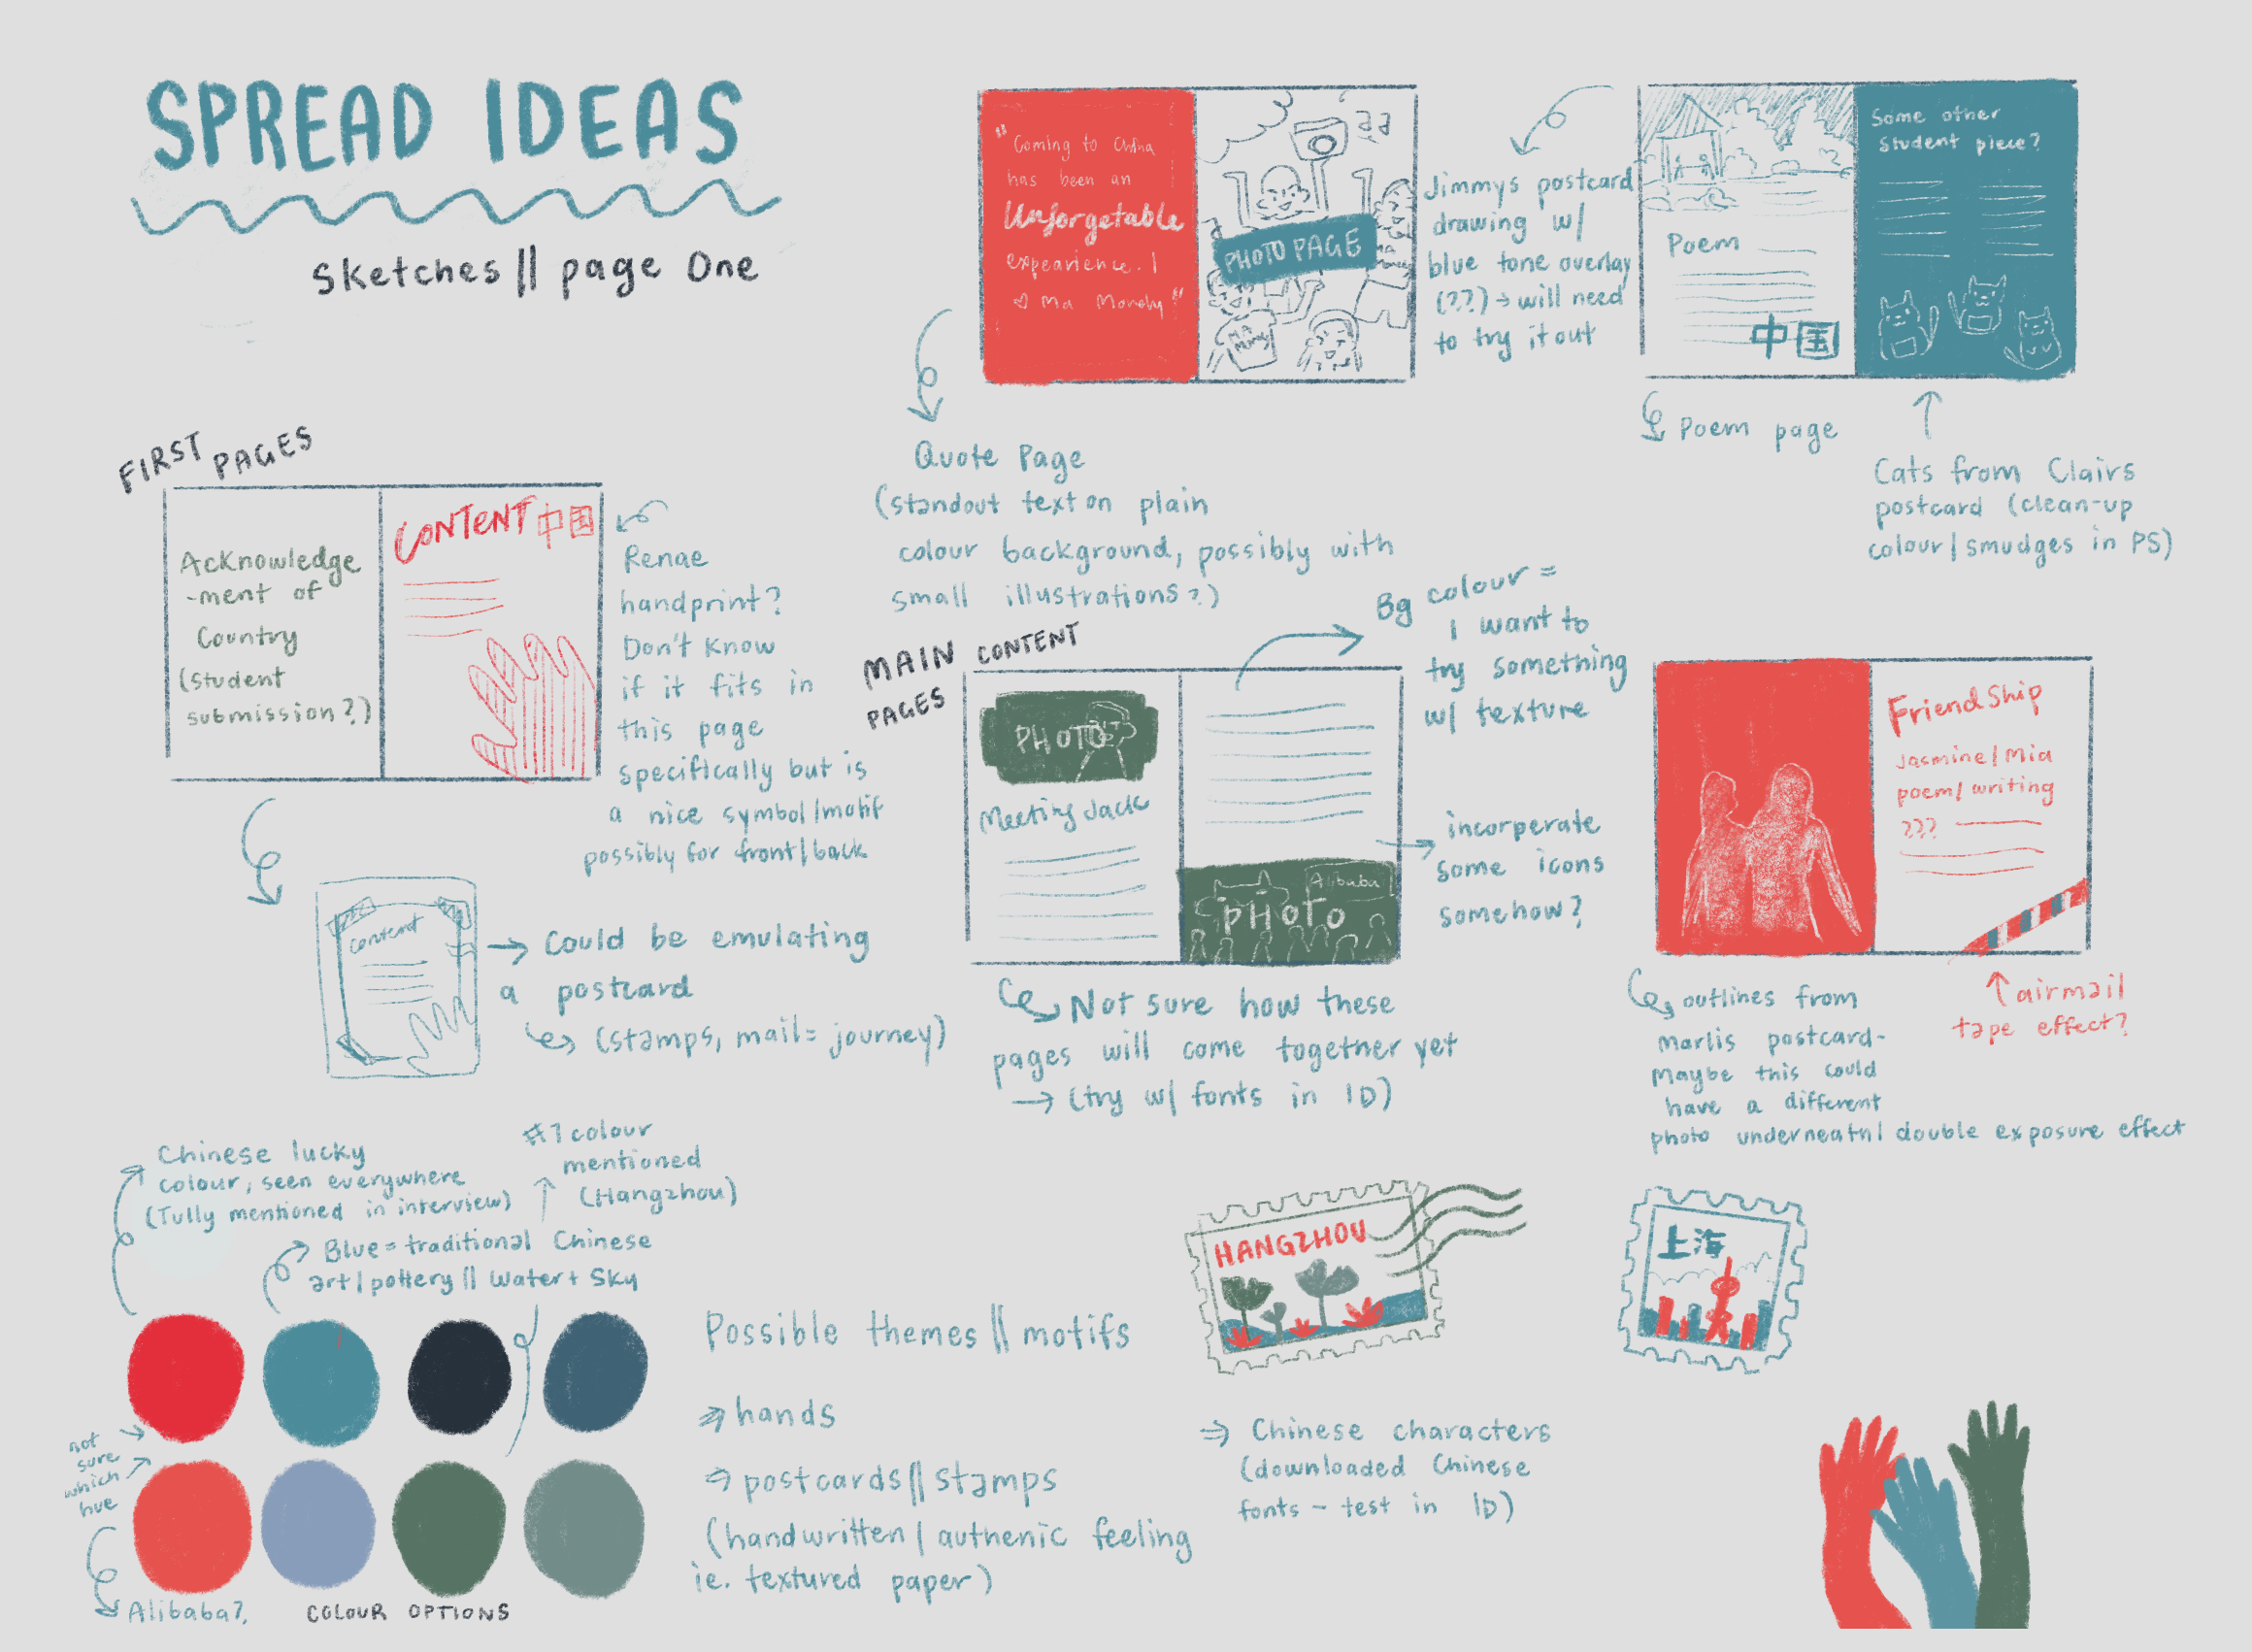 SPREAD IDEAS
Sketches || page One
"Coming to China
has been an
Unforgetable
expearience.!
Ma Mondy"
PHOTO PAGE
Jimmys postcard
drawing w/
blue tone overlay
(??) → will need
to try it out
Poem
中国
Some other
student piece?
Quote Page
(standout text on plain
colour background, possibly with
small illustrations?)
Poem page
Cats from Clairs
postcard (clean-up
colour/smudges in PS)
FIRST PAGES
Acknowledge
-ment of
Country
(student
submission?)
CONTENT 中国
Renae
handprint?
Don't know
if it fits in
this page
specifically but is
a nice symbol/motif
possibly for front/back
content
→ Could be emulating
a postcard
(stamps, mail = journey)
MAIN CONTENT
PAGES
PHOTO
Meeting Jack
Alibaba
PHOTO
Bg colour =
I want to
try something
w/ texture
incorperate
some icons
somehow?
Not sure how these
pages will come together yet
→ (try w/ fonts in ID)
Friendship
Jasmine/Mia
poem/writing
???
outlines from
marlis postcard-
Maybe this could
have a different
photo underneath/double exposure effect
airmail
tape effect?
Chinese lucky
colour, seen everywhere
(Tully mentioned in interview)
#1 colour
mentioned
(Hangzhou)
Blue = traditional Chinese
art/pottery || Water + Sky
not
sure
which
hue
Alibaba?
COLOUR OPTIONS
Possible themes || motifs
⇒ hands
⇒ postcards || stamps
(handwritten/authenic feeling
ie. textured paper)
HANGZHOU
上海
⇒ Chinese characters
(downloaded Chinese
fonts - test in ID)